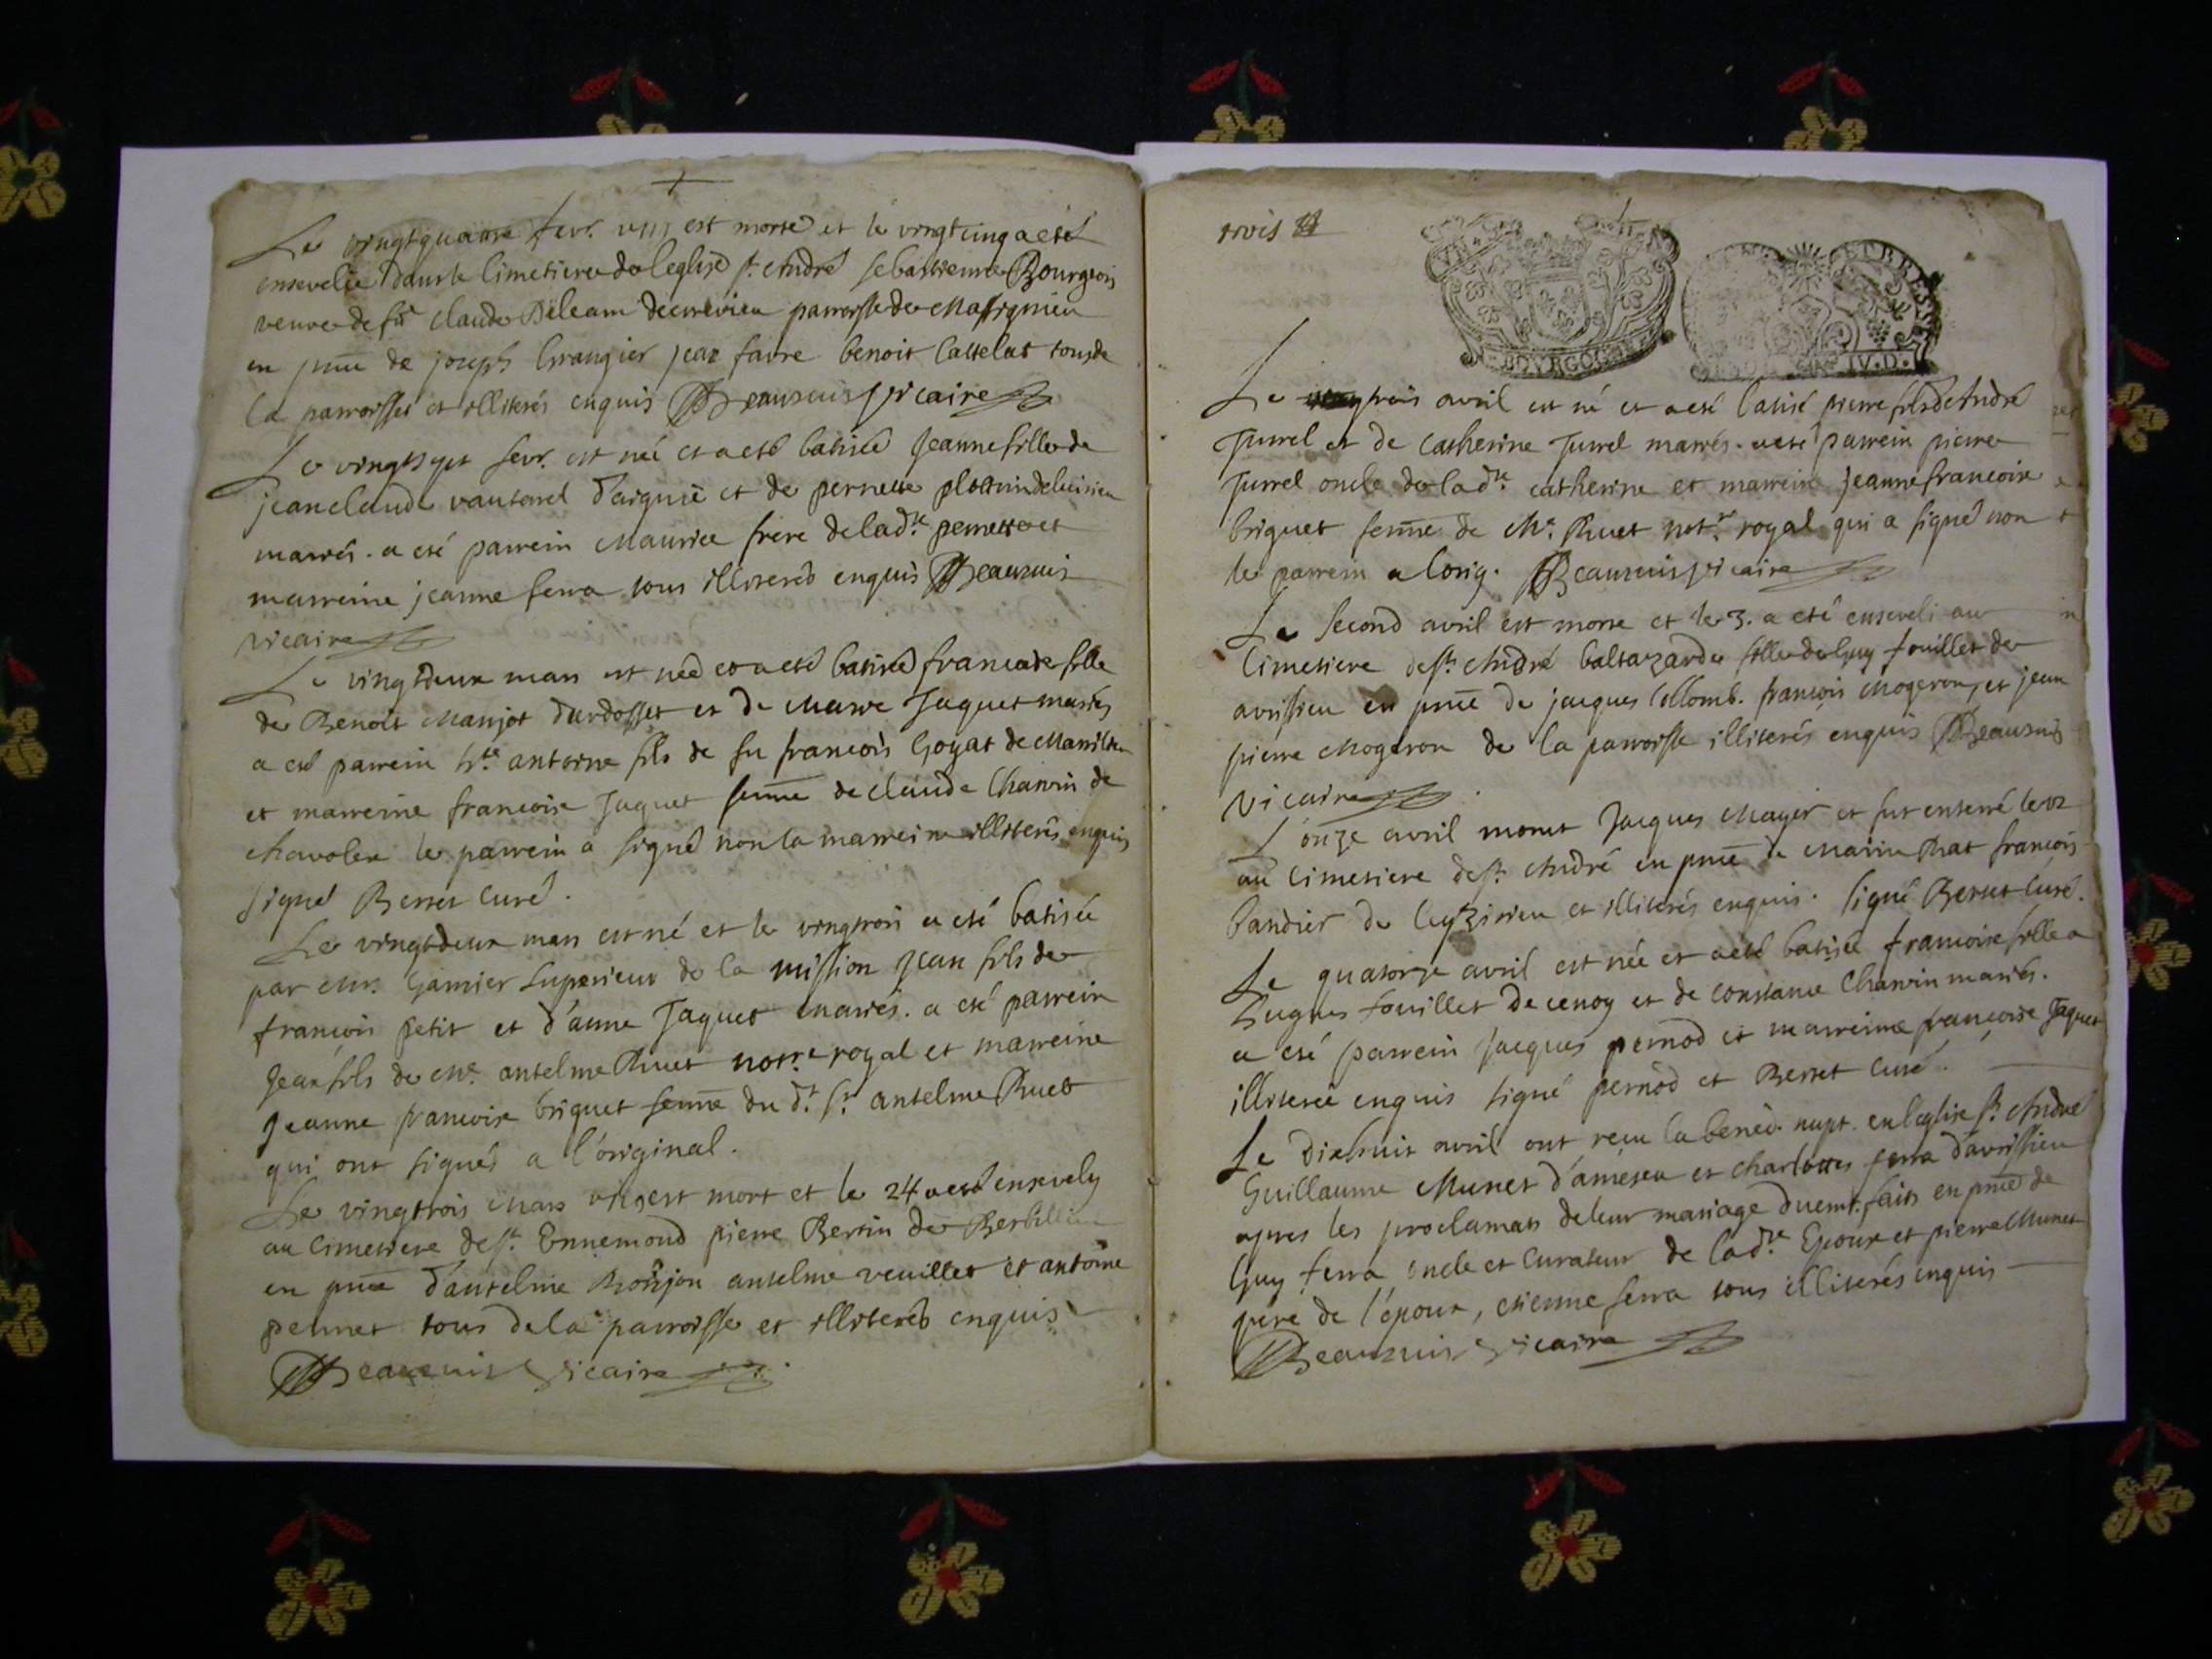 Le vingtquatre fevr. est morte et le vingtcinq a esté
ensevelie dans le Cimetiere de leglise st. André sebastienne Bourgeois
veuve de fû claude Beleam decrevieu parroisse de Massignieu
en pnce de joseph Grangier jean favre benoit Castelat tous de
la parroisse et illiterés enquis Beauvais vicaire
Le vingtsept fevr. est née et a esté batisée Jeanne fille de
jeanclaude vautarel d'aignie et de pernette
mariés. a eté parrein Maurice frere de lad.te pernette et
marreine jeanne ferra tous illiterés enquis Beauvais
vicaire
Le vingtdeux mars est née et a esté batisée francoise fille
de Benoit Manjot et de Marie Jaquet mariés
a esté parrein antoine fils de fu francois Goyat de
et marreine francoise Jaquet femme de claude Charvin de
le parrein a signé non la marreine illiterés enquis
signé Berret curé.
Le vingtdeux mars est né et le vingtrois a eté batisée
par Mr. Garnier superieur de la mission jean fils de
francois petit et d'anne Jaquet mariés. a eté parrein
Jean fils de Me. anselme Ruet not.re royal et marreine
Jeanne francoise briquet femme du d.t sr. anselme Ruet
qui ont signés a l'original.
Le vingtrois Mars est mort et le 24 a esté ensevely
au Cimetiere de st. Ennemond pierre Bertin de
en pnce d'anselme anselme veuillet et antoine
pennet tous de la parroisse et illiterés enquis
Beauvais vicaire
trois
BOURGOGNE
ET BRES
IV.D.
Le trois avril est né et a eté batisé pierre fils de André
Jurrel et de Catherine Jurrel mariés. a eté parrein pierre
Jurrel oncle de lad.te catherine et marreine jeanne francoise
briquet femme de Me. Ruet not.re royal qui a signé non
le parrein a lorig. Beauvais vicaire
Le second avril est morte et le 3. a eté enseveli au
Cimetiere de st. André baltazarde fille de Guy fouillet de
avrissieu en pnce de jacques Collomb. francois Mogeron, et jean
pierre Mogeron de la parroisse illiterés enquis Beauvais
vicaire
L'onze avril mourut Jacques Mayer et fut enterré le 12
au Cimetiere de st. André en pnce de Marin Rat francois
bandier de et illiterés enquis. signé Berret curé.
Le quatorze avril est née et a eté batisée francoise fille a
hugues fouillet de cenoy et de constance Charvin mariés.
a eté parrein jacques pernod et marreine francoise Jaquet
illiterée enquis signé pernod et Berret curé.
Le Dixhuit avril ont reçu la bened. nupt. en leglise st. André
Guillaume Munet d'ameseu et charlotte ferra d'avrissieu
apres les proclamats de leur mariage duemt. faits en pnce de
Guy ferra oncle et curateur de lad.te Epouse et pierre Munet
pere de l'epoux, etienne ferra tous illiterés enquis
Beauvais vicaire